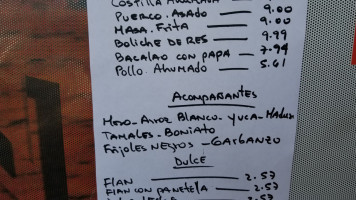 Costilla Ahumada
Puerco. Asado — 9.00
Masa. Frita — 9.00
Boliche de Res — 9.99
Bacalao con papa — 7.94
Pollo. Ahumado — 5.61
Acompañantes
Moro - Arroz Blanco - Yuca - Maduro
Tamales - Boniato
Frijoles Negros - Garbanzo
Dulce
Flan — 2.57
Flan con panetela — 2.57